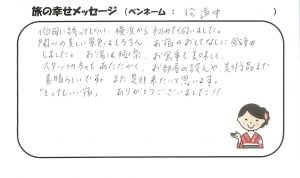 旅の幸せメッセージ（ペンネーム： 珍道中 ）
伯母に誘ってもらい、横浜から初めて伺いました。
周りの美しい景色はもちろん、お宿のおもてなしに感動
しました。お湯は極楽、お食事も美味しく、
スタッフの方々もあたたかく、お部屋の設えや美術品また
素晴らしいです。また是非来たいと思います。
「とってもいい宿」 ありがとうございました!!